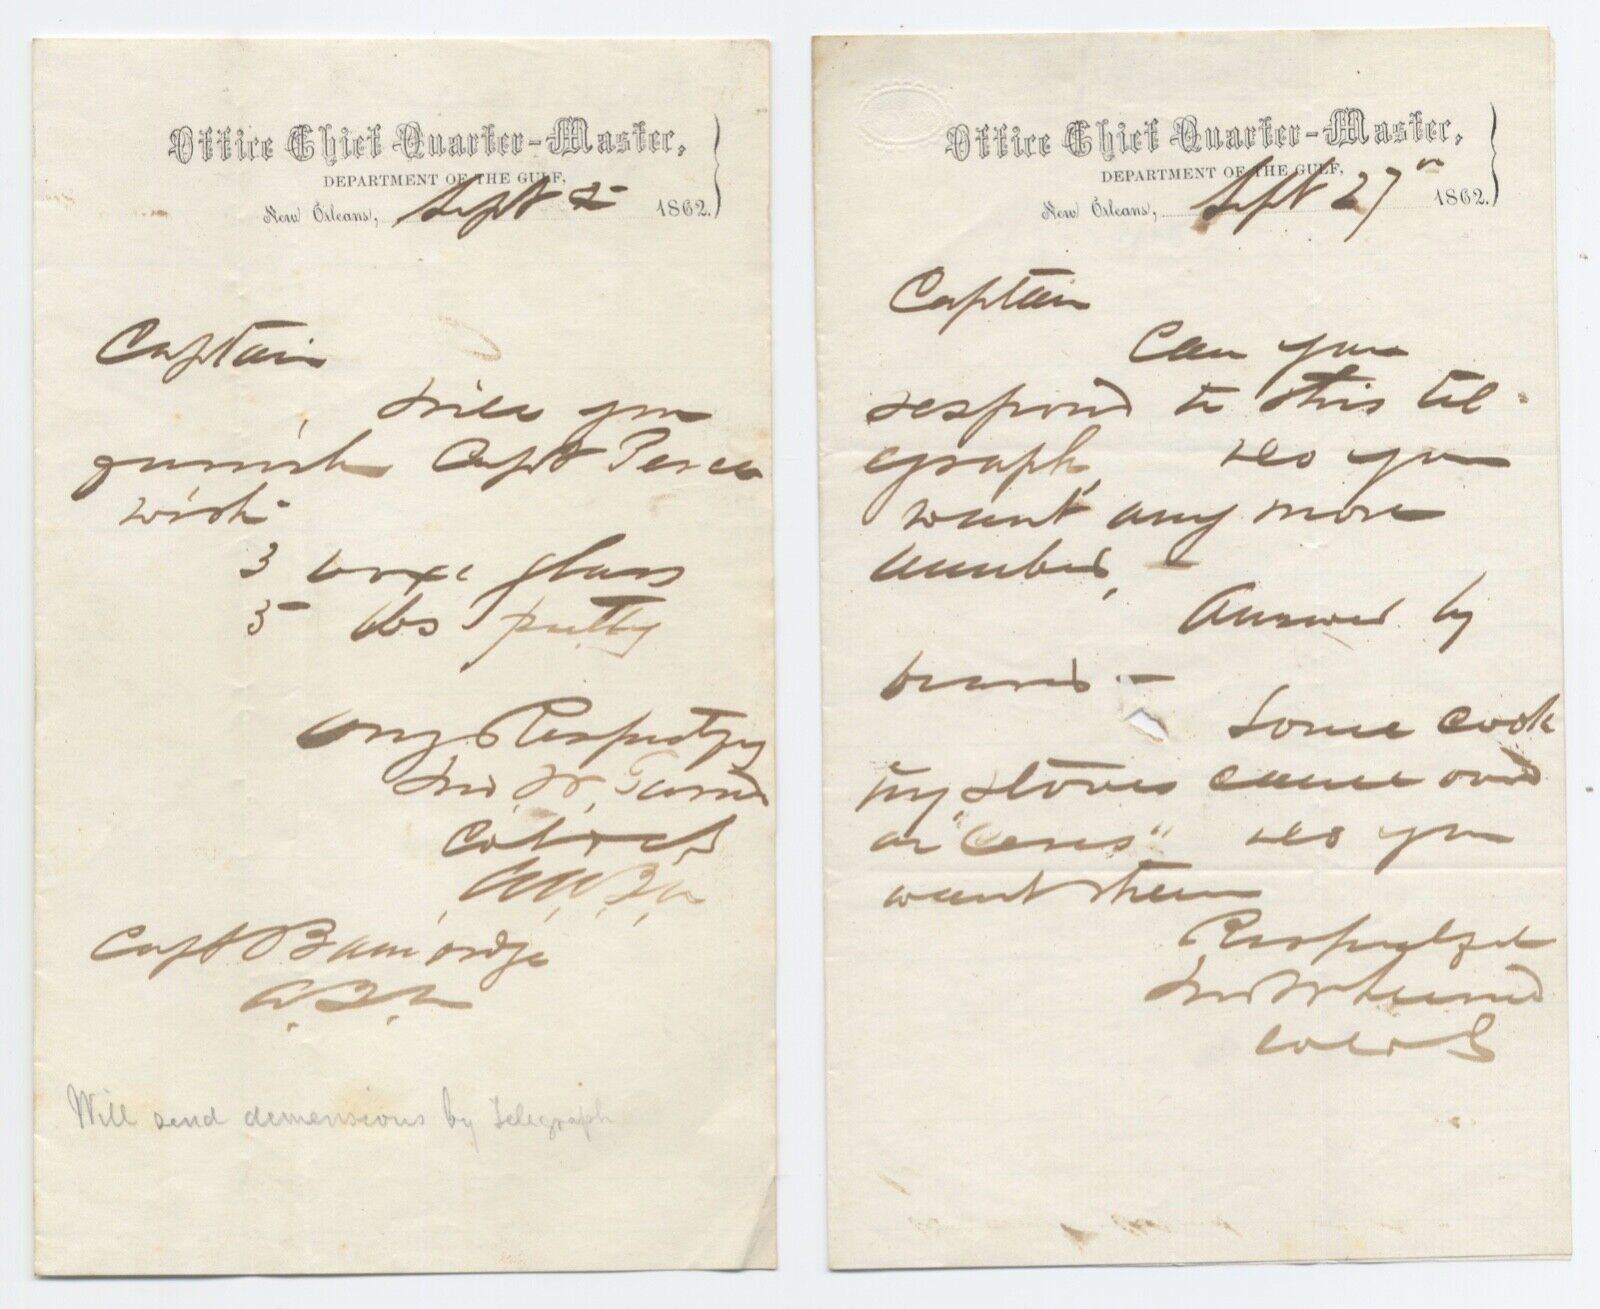 Office Chief Quarter-Master,
DEPARTMENT OF THE GULF,
New Orleans, Sept 2 1862.
Captain
Will you
furnish Capt
with
3 boxes glass
5 lbs putty
Very Respectfly
Col
A. Q. M.
Capt Bainbridge
A. Q. M.
Will send demensions by Telegraph
Office Chief Quarter-Master,
DEPARTMENT OF THE GULF,
New Orleans, Sept 27th 1862.
Captain
Can you
respond to this tel-
egraph, Do you
want any more
lumber, -
Answer by
bearer -
Some cook
ing stoves came over
on "Ceres" Do you
want them
Respectfly
Col